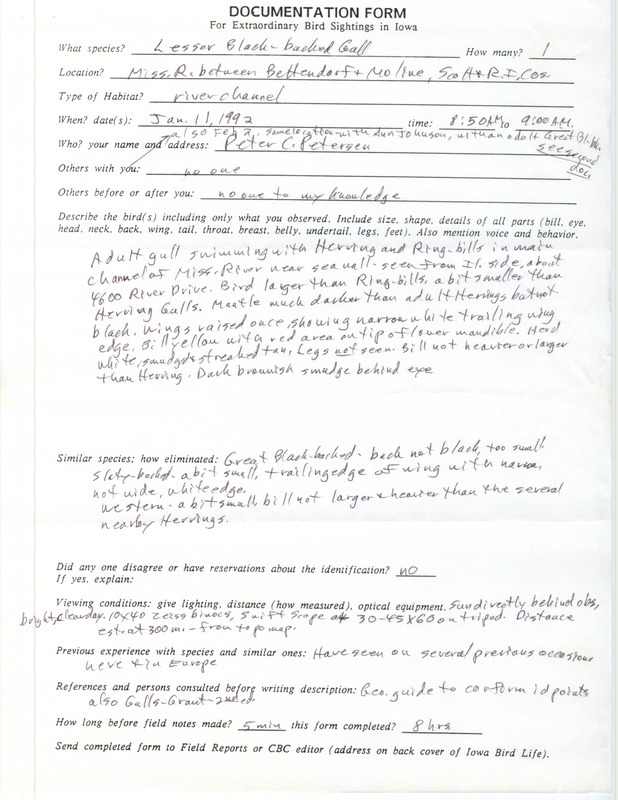 DOCUMENTATION FORM
For Extraordinary Bird Sightings in Iowa
What species? Lesser Black-backed Gull How many? 1
Location? Miss. R. between Bettendorf + Moline, Scott + R.I. Cos.
Type of Habitat? river channel
When? date(s): Jan. 11, 1992 time: 8:50 AM to 9:00 AM.
also Feb 2, same location - with Ann Johnson, with an adult Great Bl-bk.
see second
doc
Who? your name and address: Peter C. Petersen
Others with you: no one
Others before or after you: no one to my knowledge
Describe the bird(s) including only what you observed. Include size, shape, details of all parts (bill, eye,
head, neck, back, wing, tail, throat, breast, belly, undertail, legs, feet). Also mention voice and behavior.
Adult gull swimming with Herring and Ring-bills in main
channel of Miss. River near seawall - seen from Il. side, about
4600 River Drive. Bird larger than Ring-bills, a bit smaller than
Herring Gulls. Mantle much darker than adult Herrings but not
black. Wings raised once, showing narrow white trailing wing
edge. Bill yellow with red area on tip of lower mandible. Head
white, smudged + streaked tan, Legs not seen. Bill not heavier or larger
than Herring. Dark brownish smudge behind eye
Similar species; how eliminated: Great Black-backed - back not black, too small
Slaty-backed - a bit small, trailing edge of wing with narrow,
not wide, white edge.
Western - a bit small bill not larger + heavier than the several
nearby Herrings.
Did any one disagree or have reservations about the identification? no
If yes, explain:
Viewing conditions: give lighting, distance (how measured), optical equipment. Sun directly behind obs,
bright, clear day. 10x40 Zeiss binocs, Swift scope at 30-45x60 on tripod. Distance
est. at 300 m. - from topo map.
Previous experience with species and similar ones: Have seen on several previous occasions
here + in Europe
References and persons consulted before writing description: Geo. guide to confirm id points
also Gulls-Grant-2nd ed.
How long before field notes made? 5 min this form completed? 8 hrs
Send completed form to Field Reports or CBC editor (address on back cover of Iowa Bird Life).